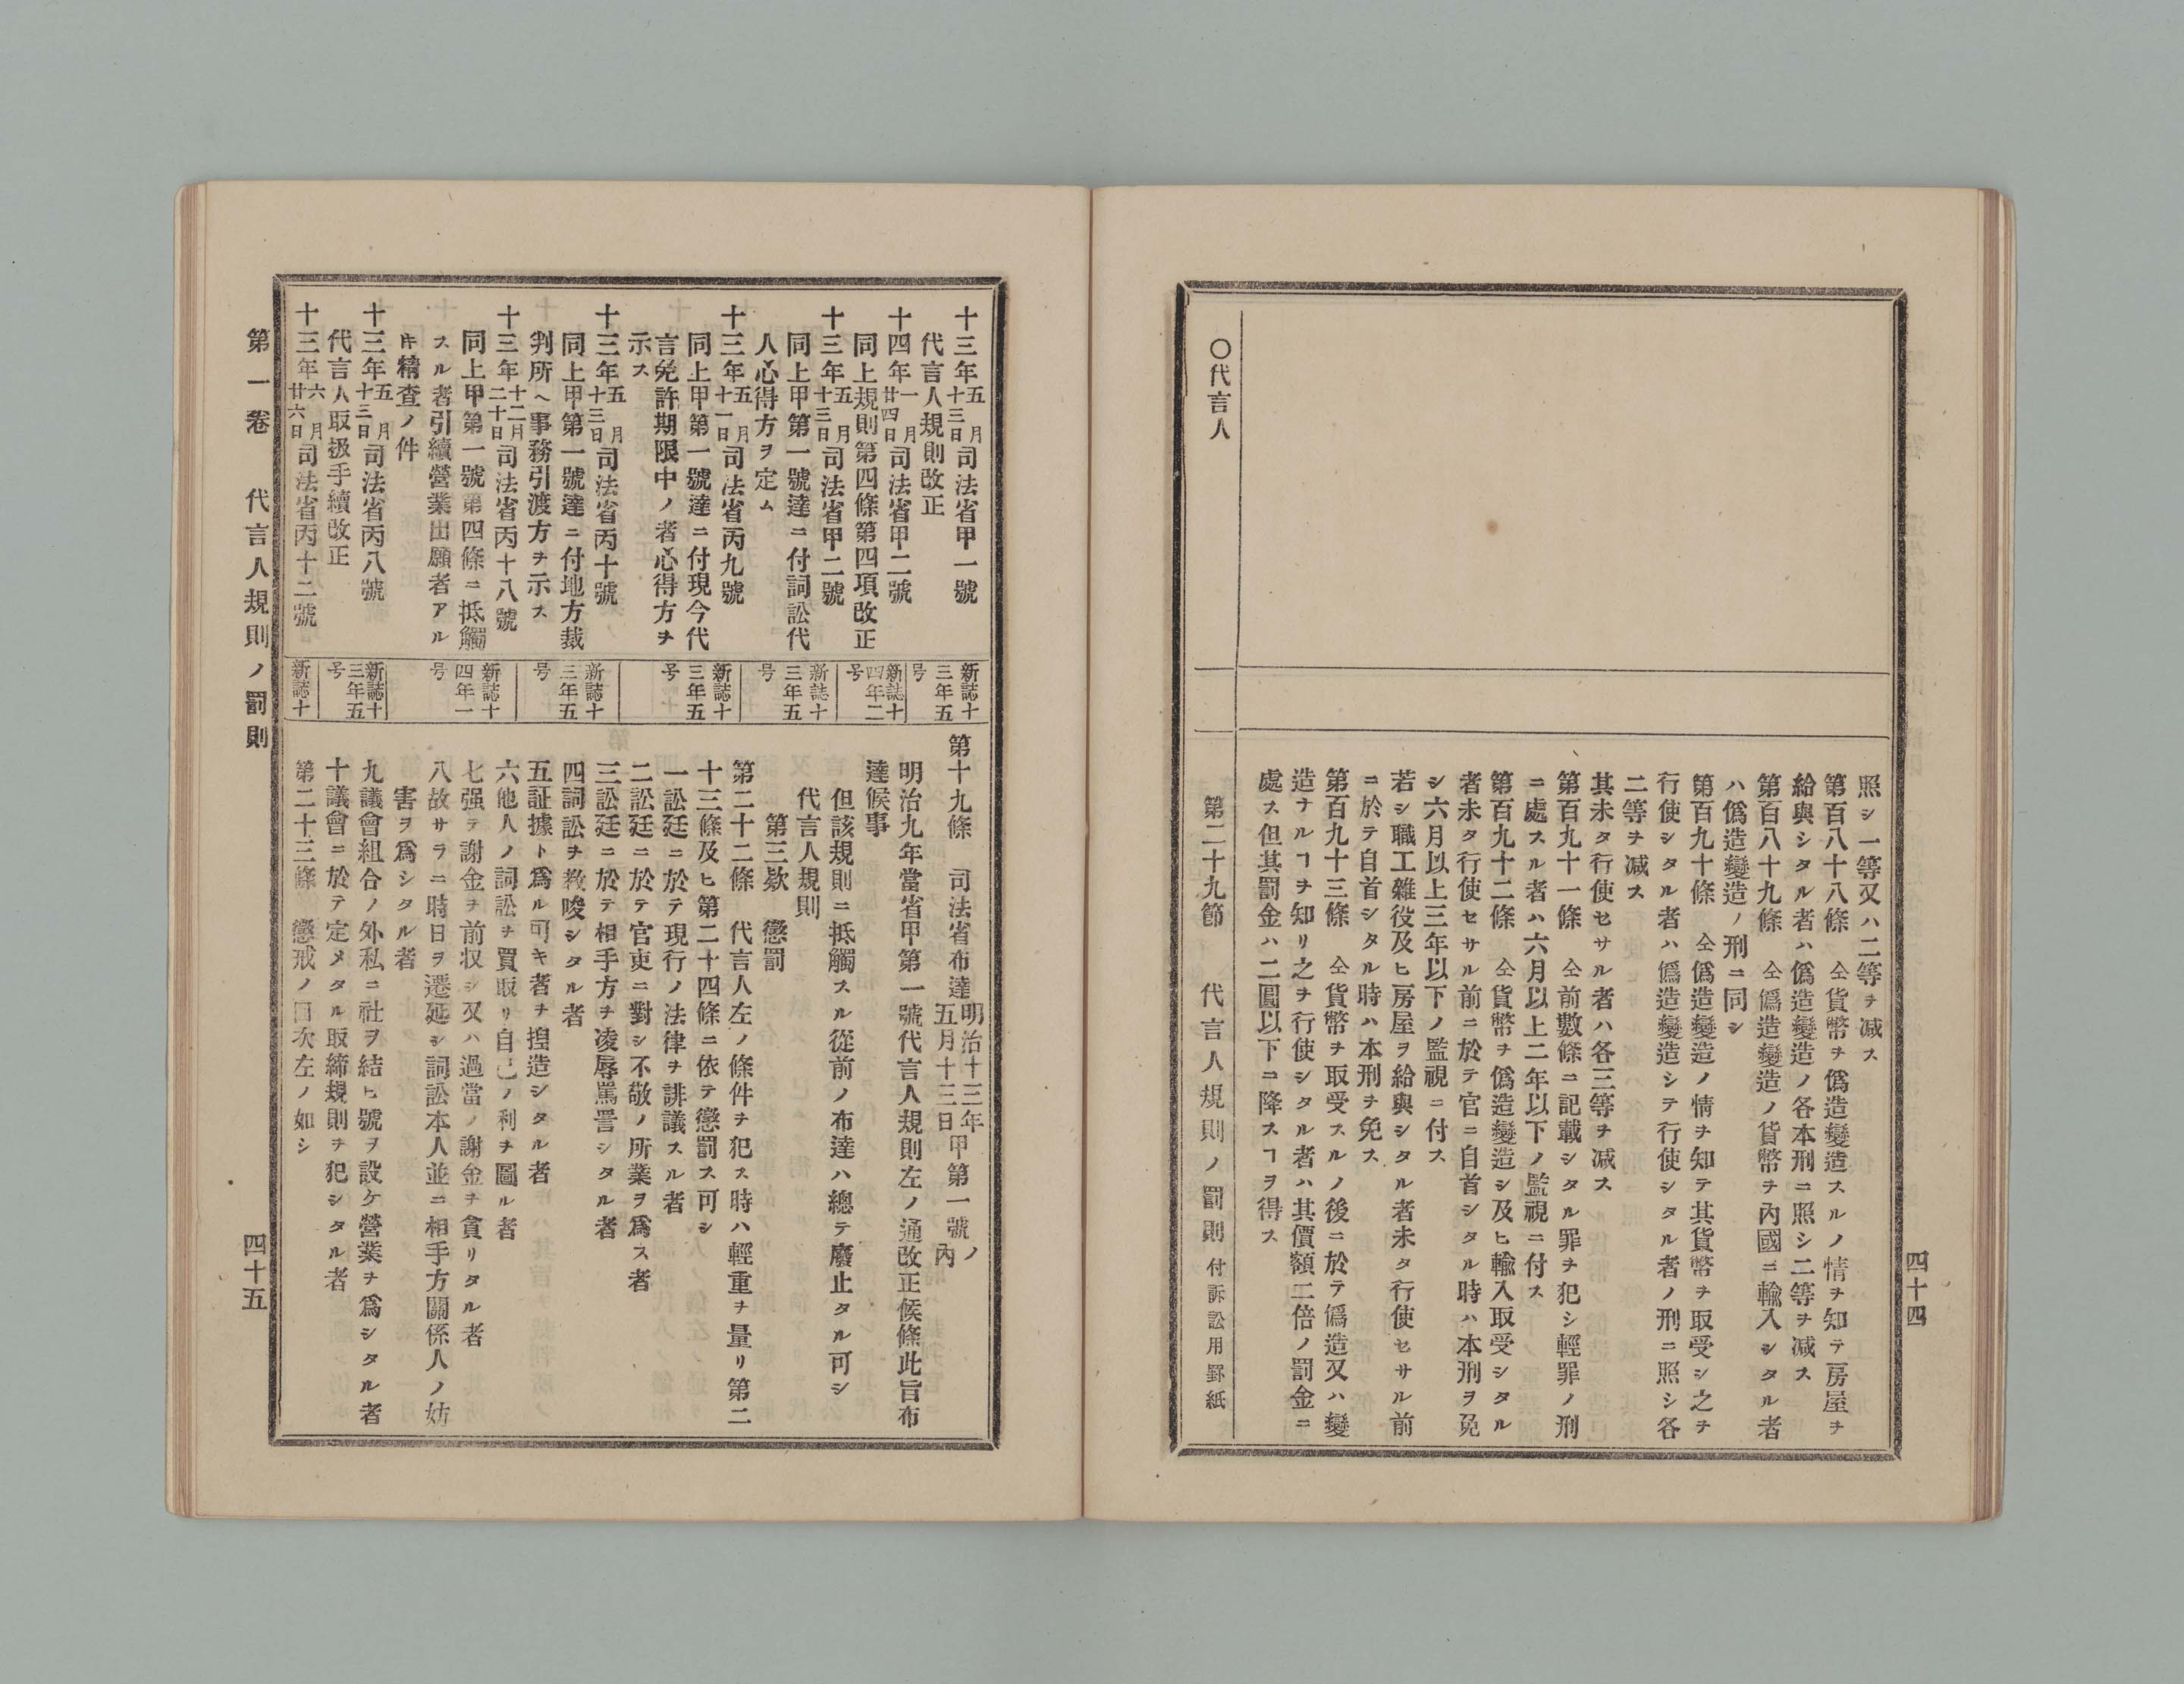 四十四
照シ一等又ハ二等ヲ減ス
第百八十八條　仝貨幣ヲ僞造變造スルノ情ヲ知テ房屋ヲ
給與シタル者ハ僞造變造ノ各本刑ニ照シ二等ヲ減ス
第百八十九條　仝僞造變造ノ貨幣ヲ內國ニ輸入シタル者
ハ僞造變造ノ刑ニ同シ
第百九十條　仝僞造變造ノ情ヲ知テ其貨幣ヲ取受シ之ヲ
行使シタル者ハ僞造變造シテ行使シタル者ノ刑ニ照シ各
二等ヲ減ス
其未タ行使セサル者ハ各三等ヲ減ス
第百九十一條　仝前數條ニ記載シタル罪ヲ犯シ輕罪ノ刑
ニ處スル者ハ六月以上二年以下ノ監視ニ付ス
第百九十二條　仝貨幣ヲ僞造變造シ及ヒ輸入取受シタル
者未タ行使セサル前ニ於テ官ニ自首シタル時ハ本刑ヲ免
シ六月以上三年以下ノ監視ニ付ス
若シ職工雜役及ヒ房屋ヲ給與シタル者未タ行使セサル前
ニ於テ自首シタル時ハ本刑ヲ免ス
第百九十三條　仝貨幣ヲ取受スルノ後ニ於テ僞造又ハ變
造ナルヿヲ知リ之ヲ行使シタル者ハ其價額二倍ノ罰金ニ
處ス但其罰金ハ二圓以下ニ降スヿヲ得ス
〇代言人
第二十九節　代言人規則ノ罰則　付訴訟用罫紙
十三年五月十三日司法省甲一號
代言人規則改正
十四年一月廿四日司法省甲二號
同上規則第四條第四項改正
十三年五月十三日司法省甲二號
同上甲第一號達ニ付詞訟代
人心得方ヲ定ム
十三年五月十一日司法省丙九號
同上甲第一號達ニ付現今代
言免許期限中ノ者心得方ヲ
示ス
十三年五月十三日司法省丙十號
同上甲第一號達ニ付地方裁
判所ヘ事務引渡方ヲ示ス
十三年十二月二十日司法省丙十八號
同上甲第一號第四條ニ抵觸
スル者引續營業出願者アル
𪜈精查ノ件
十三年五月十三日司法省丙八號
代言人取扱手續改正
十三年六月廿六日司法省丙十二號
新誌十
三年五
号
新誌十
四年二
号
新誌十
三年五
号
新誌十
三年五
号
新誌十
三年五
号
新誌十
四年一
号
新誌十
三年五
号
新誌十
第十九條　司法省布達明治十三年五月十三日甲第一號ノ內
明治九年當省甲第一號代言人規則左ノ通改正候條此旨布
達候事
但該規則ニ抵觸スル從前ノ布達ハ總テ廢止タル可シ
代言人規則
第三款　懲罰
第二十二條　代言人左ノ條件ヲ犯ス時ハ輕重ヲ量リ第二
十三條及ヒ第二十四條ニ依テ懲罰ス可シ
一訟廷ニ於テ現行ノ法律ヲ誹議スル者
二訟廷ニ於テ官吏ニ對シ不敬ノ所業ヲ爲ス者
三訟廷ニ於テ相手方ヲ凌辱罵詈シタル者
四詞訟ヲ敎唆シタル者
五証據ト爲ル可キ者ヲ揑造シタル者
六他人ノ詞訟ヲ買取リ自己ノ利ヲ圖ル者
七强テ謝金ヲ前収シ又ハ過當ノ謝金ヲ貪リタル者
八故サラニ時日ヲ遷延シ詞訟本人並ニ相手方關係人ノ妨
害ヲ爲シタル者
九議會組合ノ外私ニ社ヲ結ヒ號ヲ設ケ營業ヲ爲シタル者
十議會ニ於テ定メタル取締規則ヲ犯シタル者
第二十三條　懲戒ノ目次左ノ如シ
第一卷　代言人規則ノ罰則
四十五